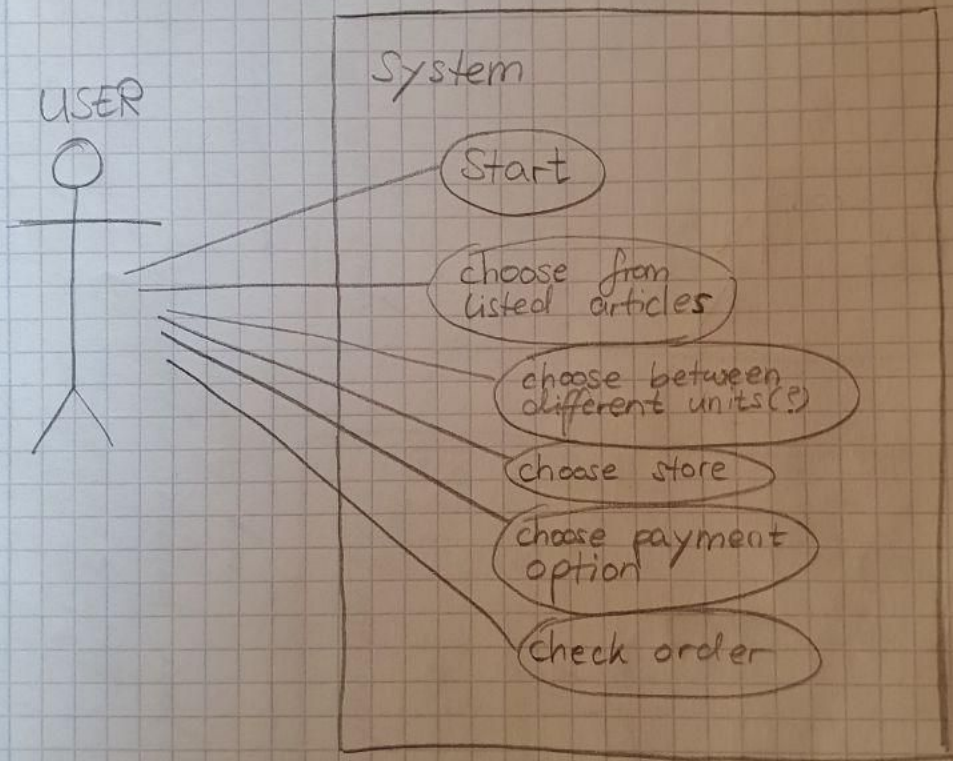 System
USER
Start
choose from
listed articles
choose between
different units(?)
choose store
choose payment
option
check order